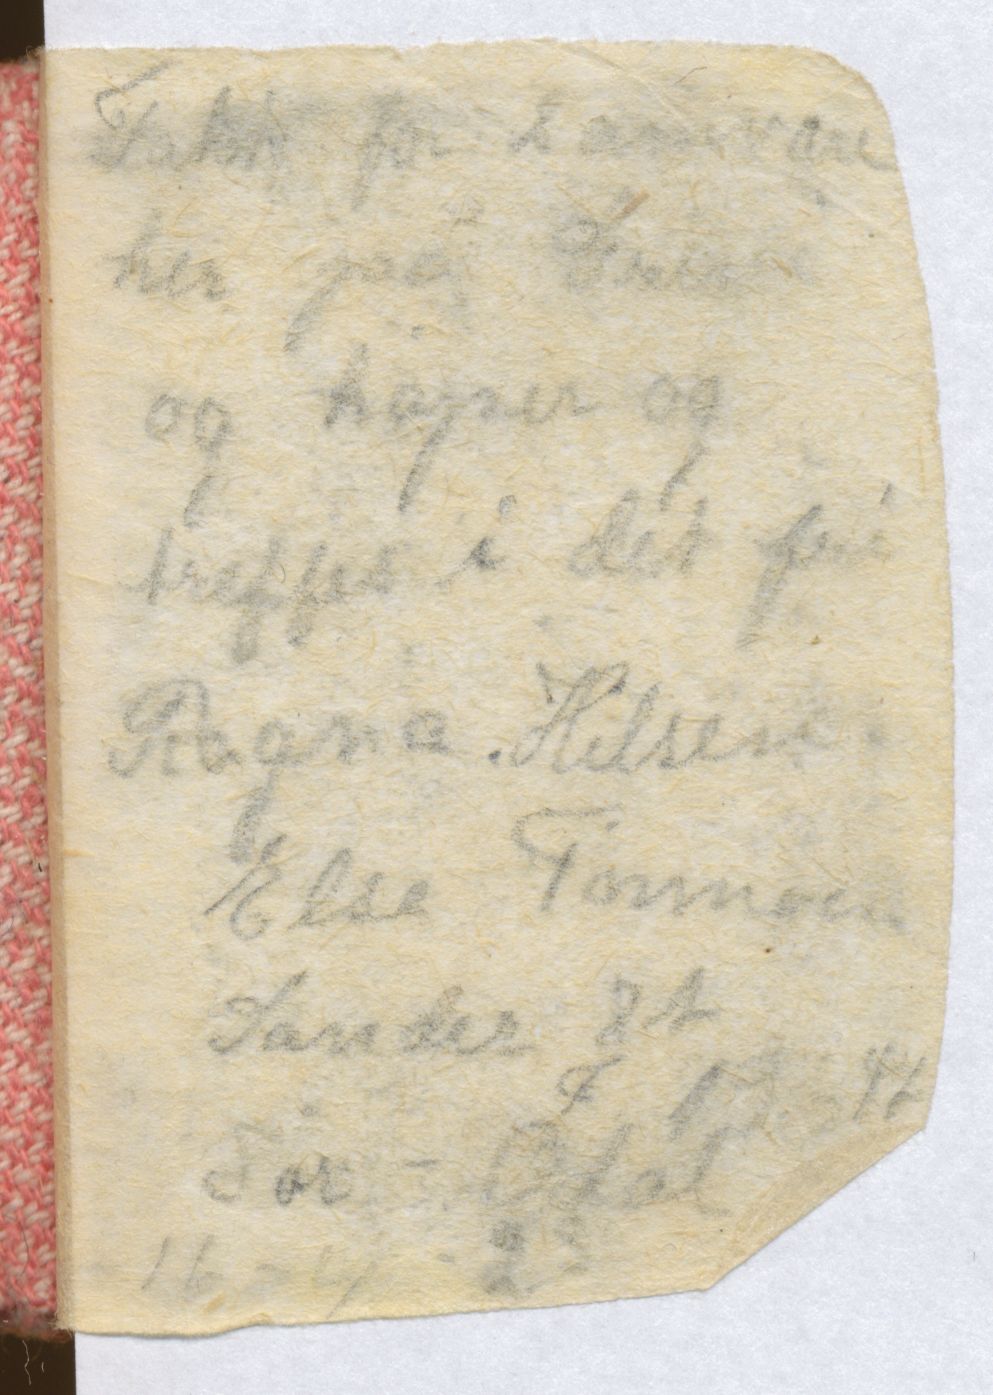 Takk for samvære
her på Grini
og håper og
treffes i det fri
Ragna Nilsen.
Else Tormoen
Sander st
Sør-Odal
16-4-